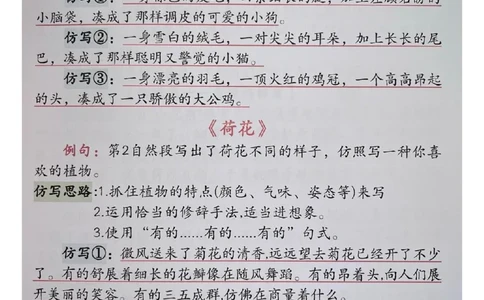 小脑袋，凑成了那样调皮的可爱的小狗。
仿写②：一身雪白的绒毛，一对尖尖的耳朵，加上长长的尾
巴，凑成了那样聪明又警觉的小猫。
仿写③：一身漂亮的羽毛，一顶火红的鸡冠，一个高高昂起
的头，凑成了一只骄傲的大公鸡。
《荷花》
例句：第2自然段写出了荷花不同的样子，仿照写一种你喜
欢的植物。
仿写思路:1.抓住植物的特点(颜色、气味、姿态等)来写
2.运用恰当的修辞手法,适当进想象。
3.使用“有的……有的……有的”句式。
仿写①：微风送来了菊花的清香,远远望去菊花已经开了不少
了。有的舒展着细长的花瓣像在随风舞蹈。有的昂着头,向人们展
开美丽的笑容。有的三五成群,仿佛在商量着什么。